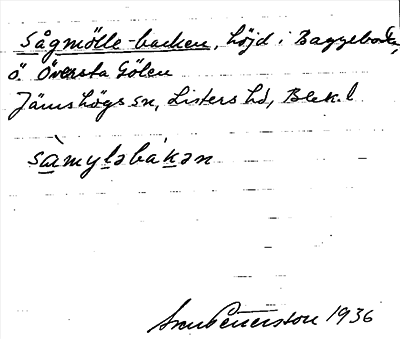 Sågmölle-backen, höjd i Baggeboda,
ö. Översta Gölen
Jämshögs sn, Listers hd, Blek. l.
sàmyləbákən
Sven Petersson 1936